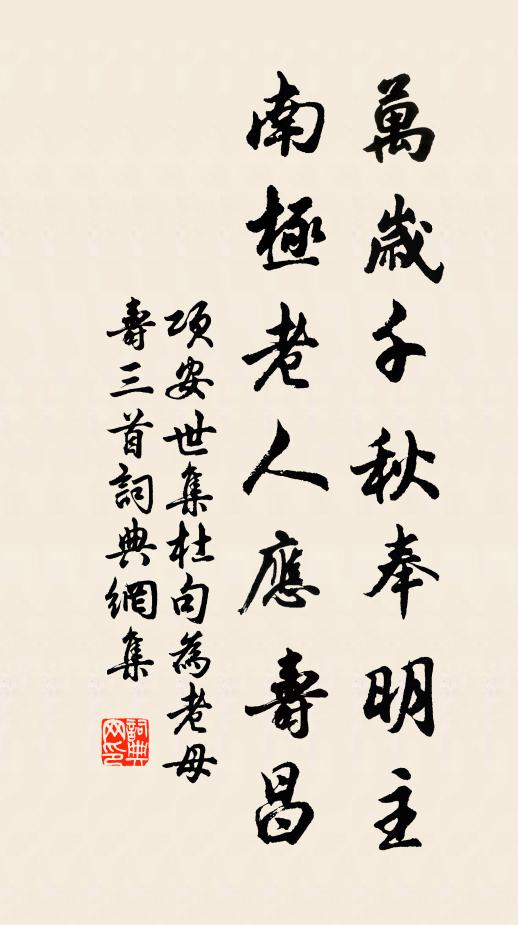 萬歲千秋奉明主
南極老人應壽昌
項安世集杜句為老母
壽三首詞典網集
詞典網印